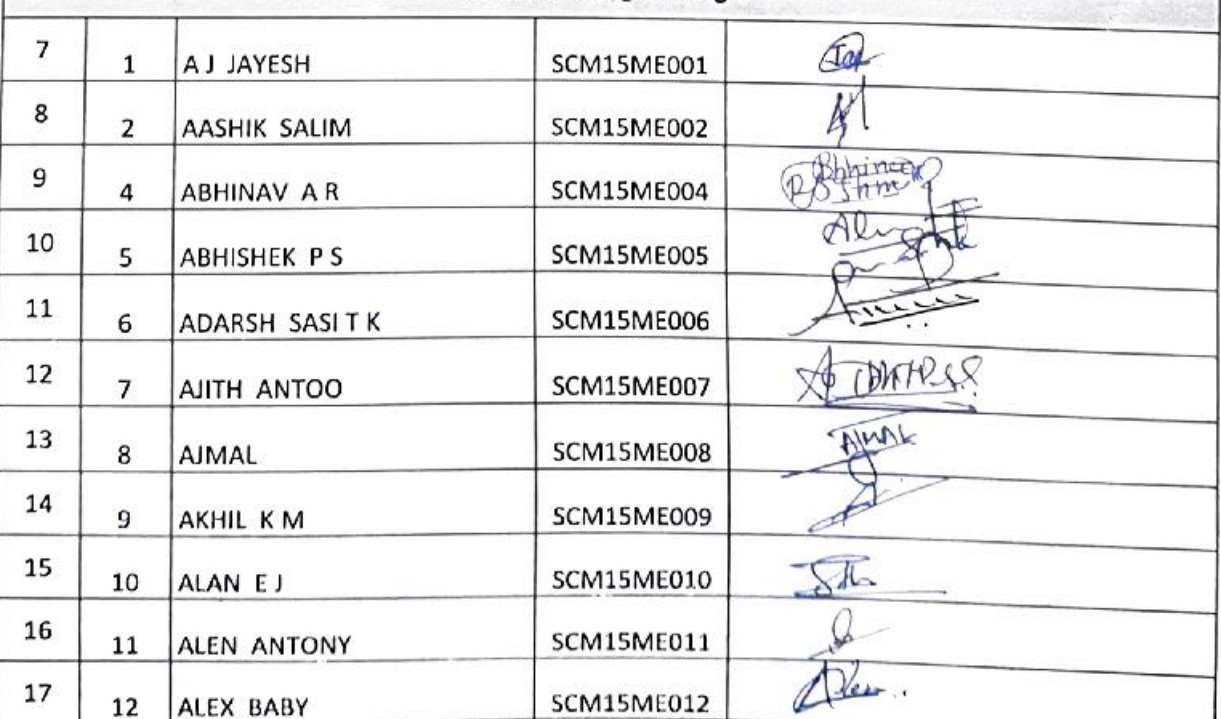 7 1 A J JAYESH SCM15ME001
8 2 AASHIK SALIM SCM15ME002
9 4 ABHINAV A R SCM15ME004
10 5 ABHISHEK P S SCM15ME005
11 6 ADARSH SASI T K SCM15ME006
12 7 AJITH ANTOO SCM15ME007
13 8 AJMAL SCM15ME008 AJMAL
14 9 AKHIL K M SCM15ME009
15 10 ALAN E J SCM15ME010
16 11 ALEN ANTONY SCM15ME011
17 12 ALEX BABY SCM15ME012